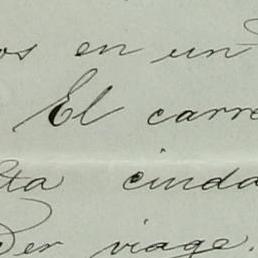 os en un
El carre
ta cinda
der viage.